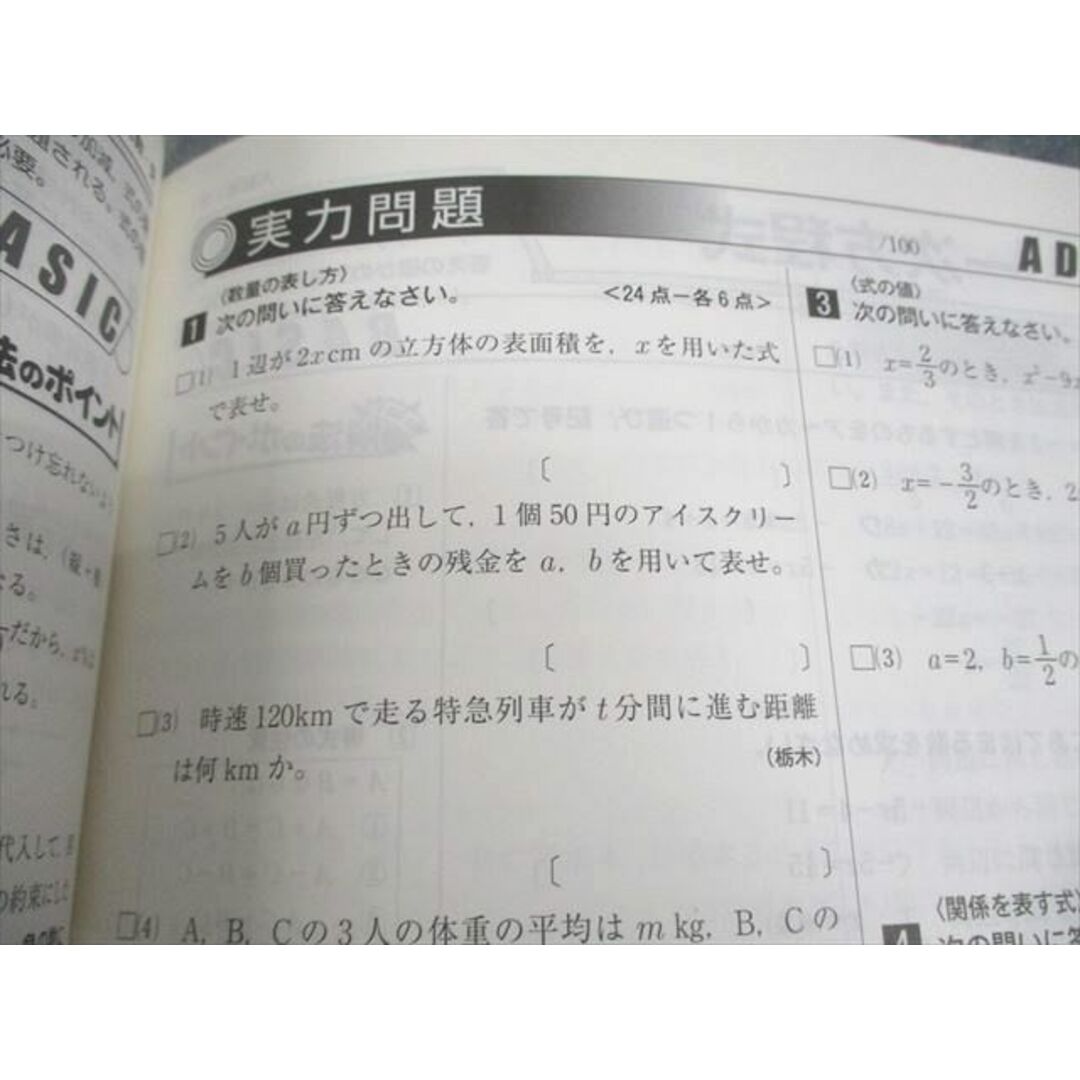 必要。
ASIC
法のポイント
つけ忘れないよう
さは,
なる。
だから,
れる。
代入して
の約束にした
実力問題
/100
AD
〈数量の表し方〉
1 次の問いに答えなさい。 <24点−各6点>
□(1) 1辺が2xcmの立方体の表面積を,xを用いた式
で表せ。
〔 〕
□(2) 5人がa円ずつ出して,1個50円のアイスクリー
ムをb個買ったときの残金をa,bを用いて表せ。
〔 〕
□(3) 時速120kmで走る特急列車がt分間に進む距離
は何kmか。 (栃木)
〔 〕
□(4) A,B,Cの3人の体重の平均はm kg,B,Cの
〈式の値〉
3 次の問いに答えなさい。
□(1) x=2/3のとき,x²−9x
□(2) x=−3/2のとき,2
□(3) a=2,b=1/2の
〈関係を表す式〉
4 次の問いに答